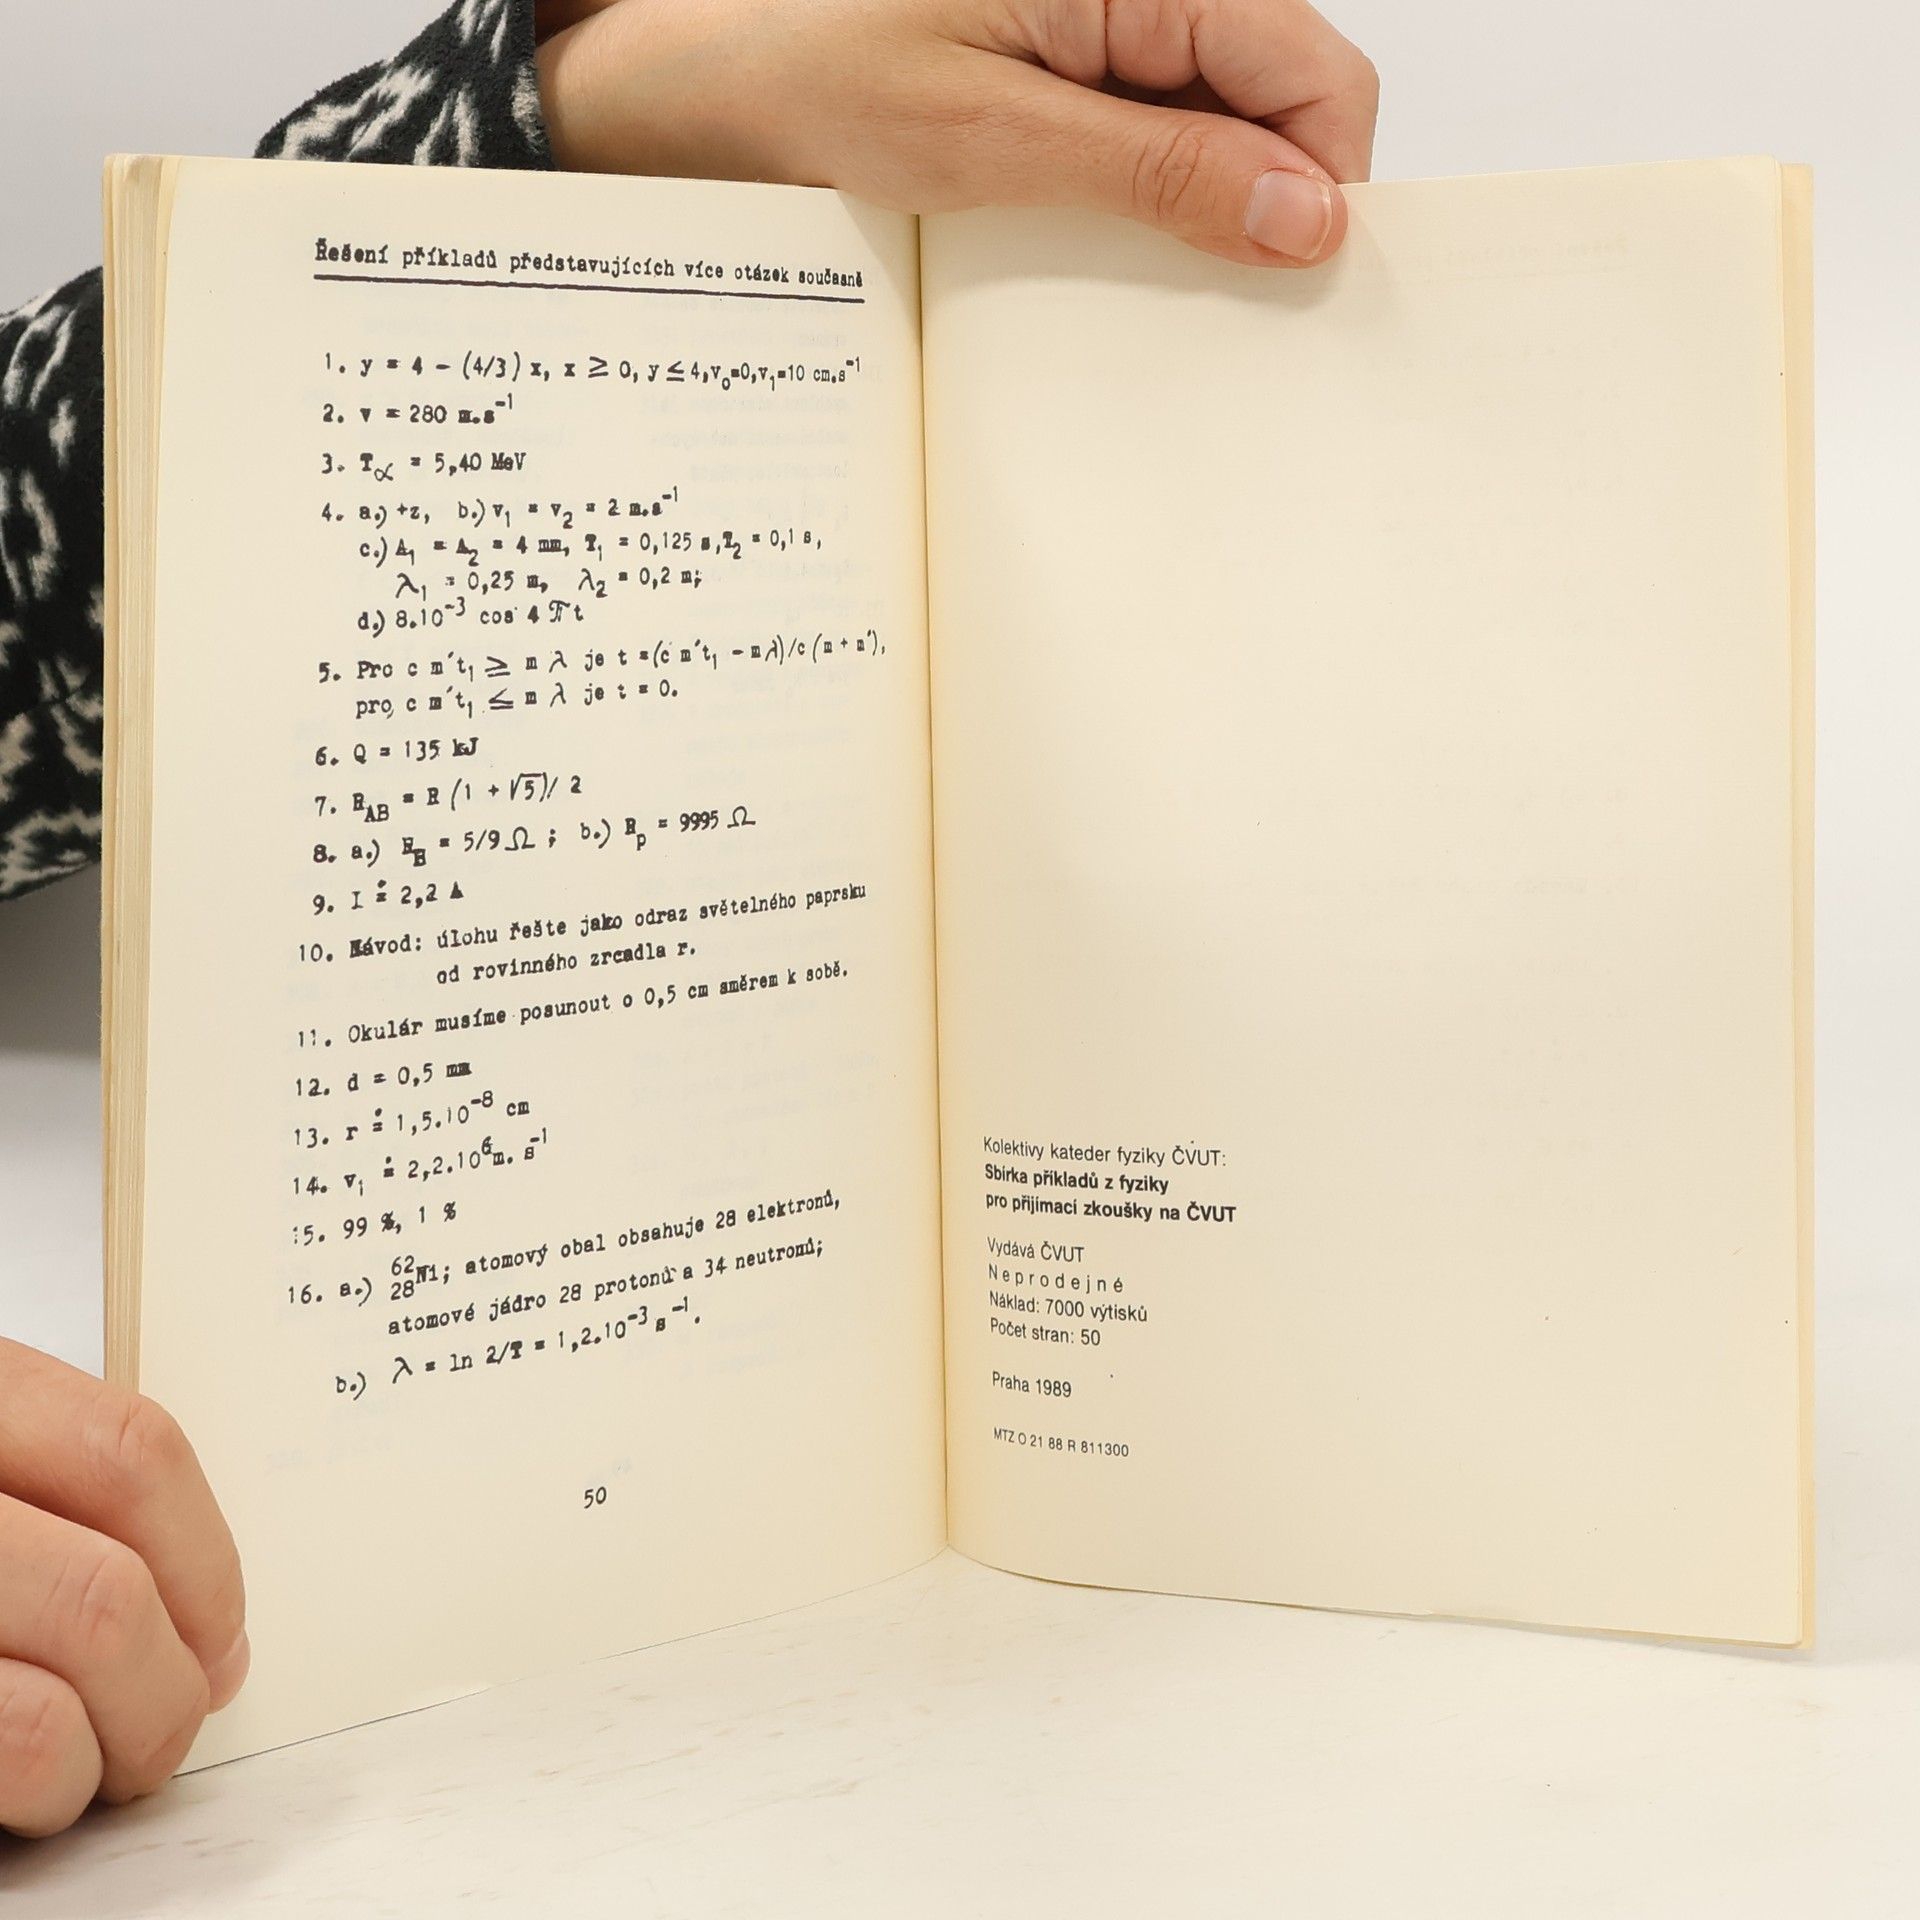 Řešení příkladů představujících více otázek současně
1. y = 4 - (4/3) x, x ≥ 0, y ≤ 4, v₀=0, v₁=10 cm.s⁻¹
2. v = 280 m.s⁻¹
3. T∝ = 5,40 MeV
4. a.) +z, b.) v₁ = v₂ = 2 m.s⁻¹
c.) A₁ = A₂ = 4 mm, T₁ = 0,125 s, T₂ = 0,1 s,
λ₁ = 0,25 m, λ₂ = 0,2 m;
d.) 8.10⁻³ cos 4 π t
5. Pro c m´t₁ ≥ m λ je t =(c m´t₁ - m λ)/c (m + m´),
pro c m´t₁ ≤ m λ je t = 0.
6. Q = 135 kJ
7. R_AB = R (1 + √5)/ 2
8. a.) R_B = 5/9 Ω ; b.) R_p = 9995 Ω
9. I ≐ 2,2 A
10. Návod: úlohu řešte jako odraz světelného paprsku
od rovinného zrcadla r.
11. Okulár musíme posunout o 0,5 cm směrem k sobě.
12. d = 0,5 mm
13. r ≐ 1,5.10⁻⁸ cm
14. v₁ ≐ 2,2.10⁶ m. s⁻¹
15. 99 %, 1 %
16. a.) ⁶²₂₈Ni; atomový obal obsahuje 28 elektronů,
atomové jádro 28 protonů a 34 neutronů;
b.) λ = ln 2/T = 1,2.10⁻³ s⁻¹.
50
Kolektivy kateder fyziky ČVUT:
Sbírka příkladů z fyziky
pro přijímací zkoušky na ČVUT
Vydává ČVUT
Neprodejné
Náklad: 7000 výtisků
Počet stran: 50
Praha 1989
MTZ O 21 88 R 811300